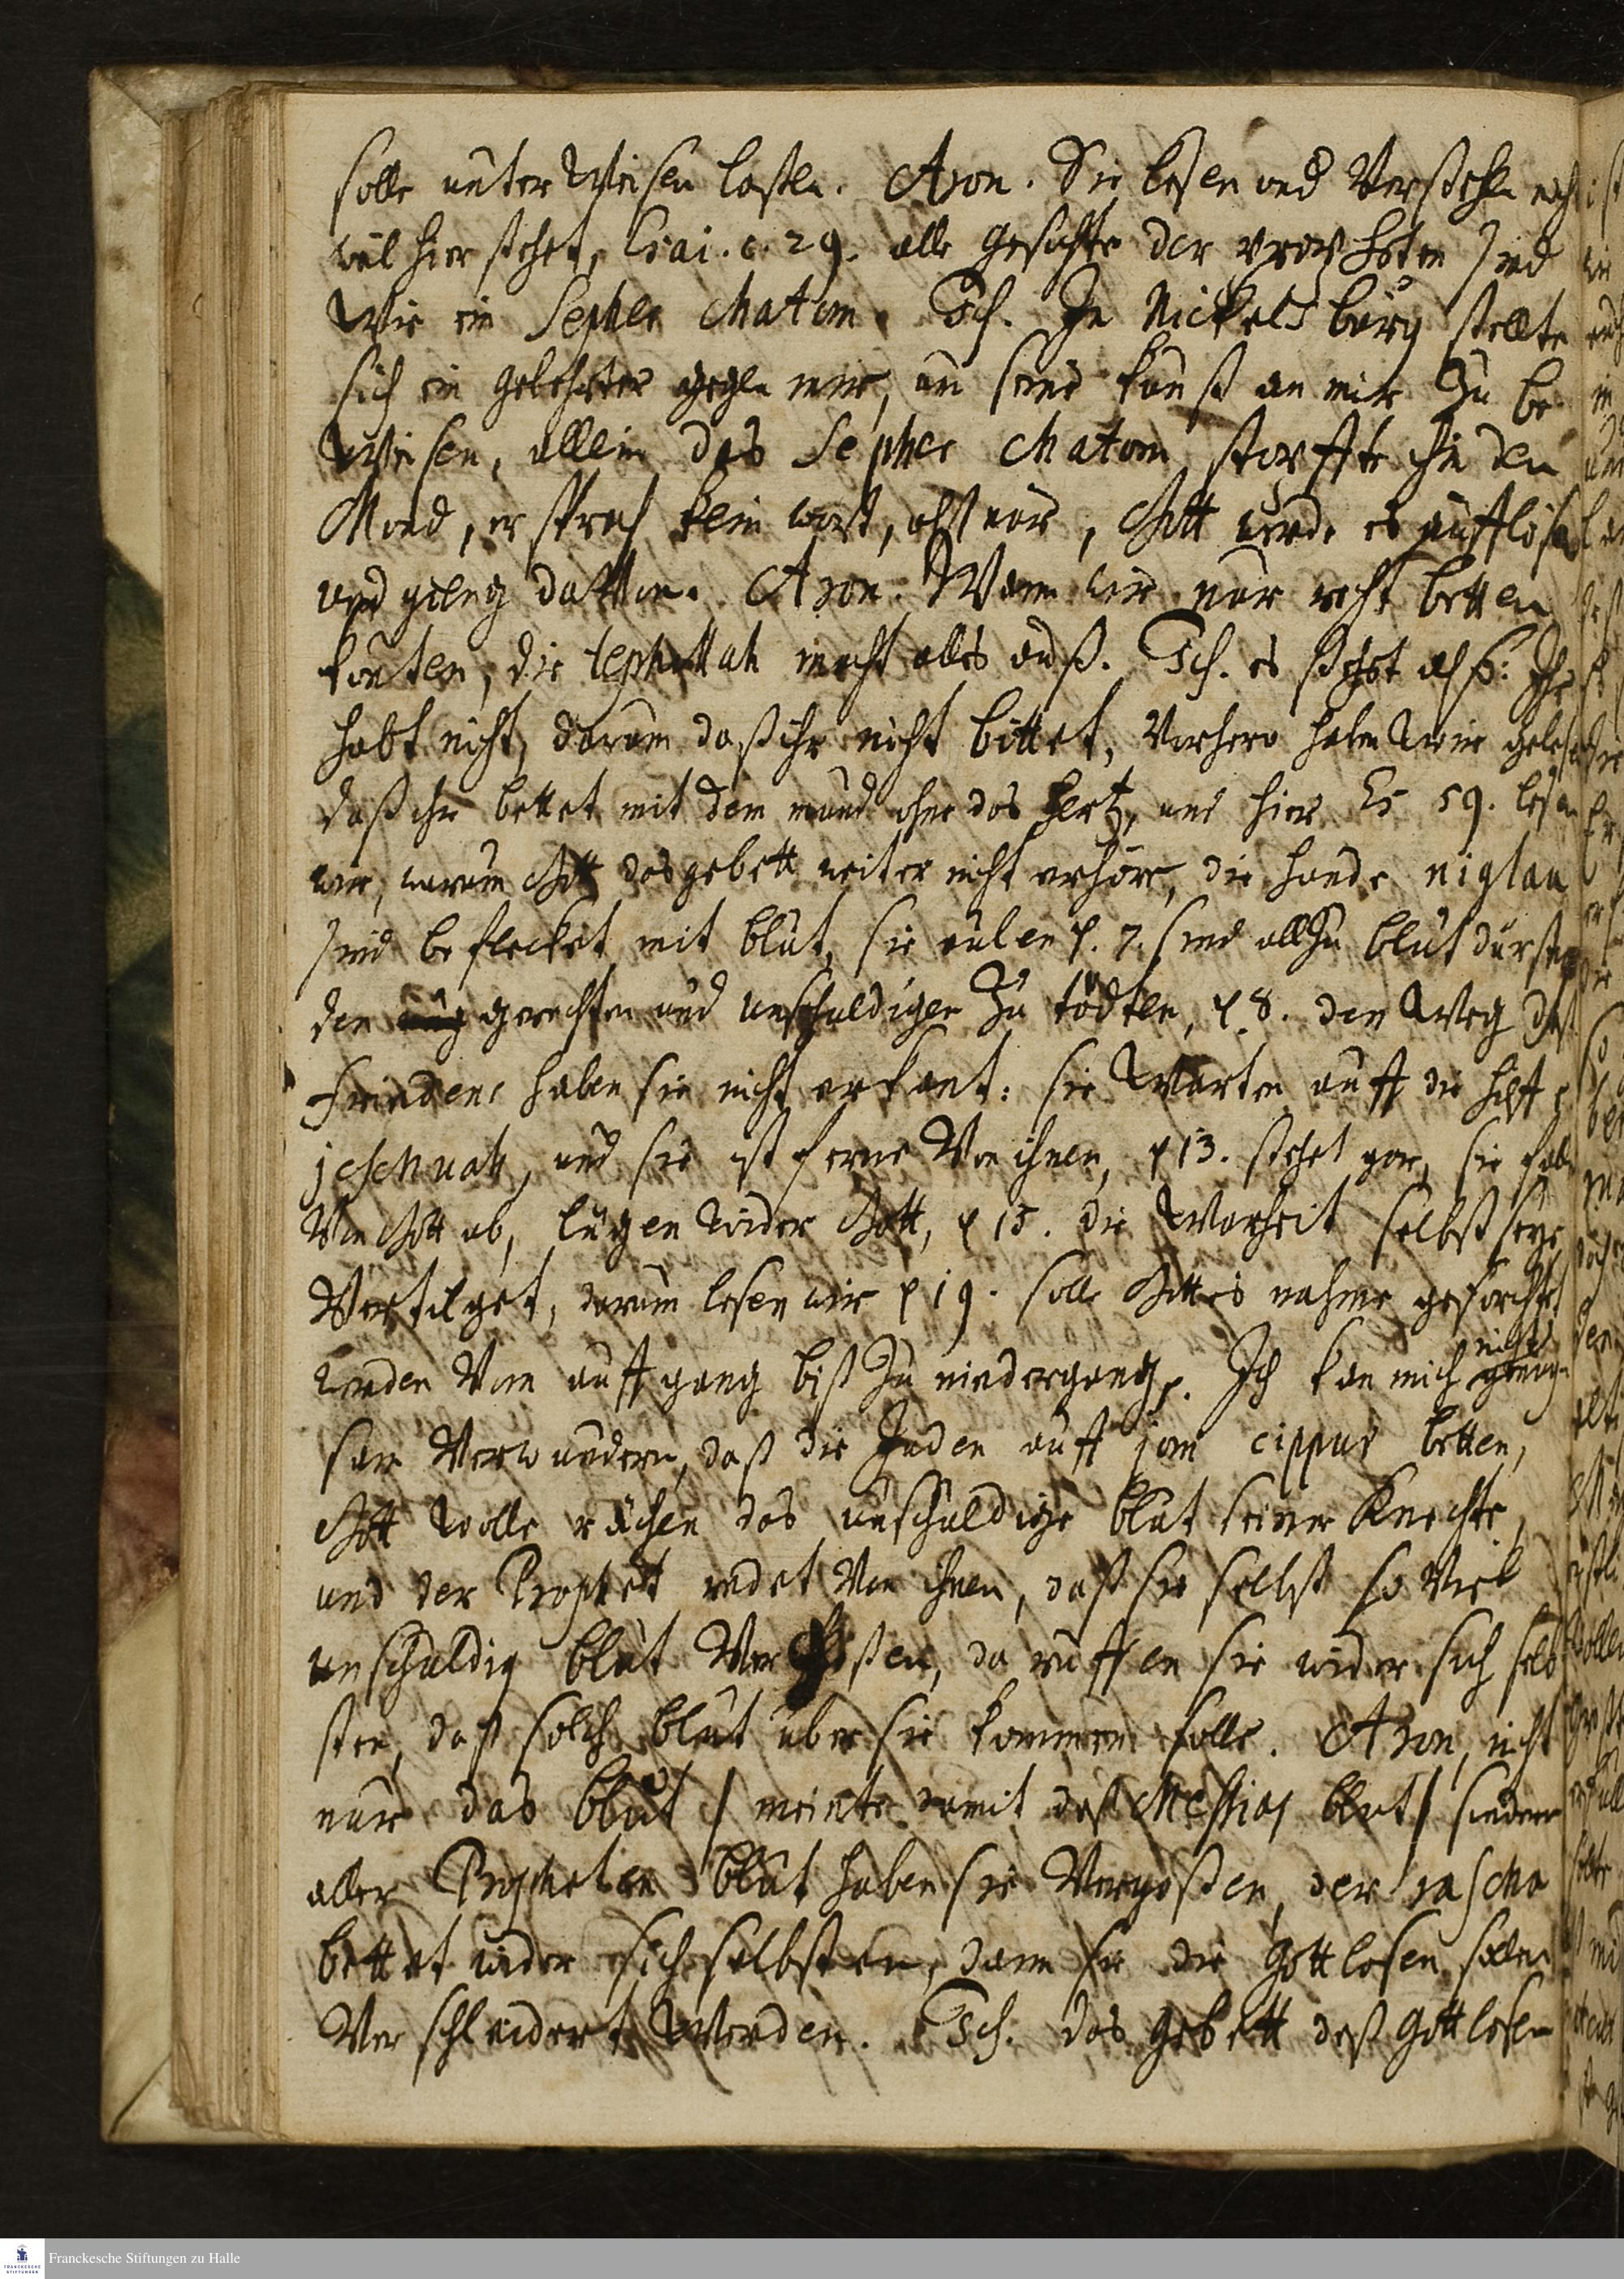 solle unterweisen laßen. Aron. Sie lesen und verstehen nicht
weil hier stehet, Esai. c. 29. alle gesichte der propheten sind
wie ein Sepher chatom. Ich. In Nickelsburg stellte
sich ein gelehrter gegen mir, um seine kunst an mir zu be
weisen, allein das Sepher chatom stopffte ihm den
Mond, er sprach kein wort, alß nur, Gott werde es aufflösen
und gieng davon. Aron. Wann wir nur recht betten
könten, die tephillah macht alles auß. Ich. es stehet Ihr
habt nicht, darum daß ihr nicht bittet, vorhero haben wir gelesen
daß ihr bettet mit dem mund ohne das hertz, und hier Es 59. lesen
wir, warum Gott das gebett weiter nicht erhöre, die hände niglau
sind beflecket mit blut, sie eulen v. 7. sind allzu blutdürstig
den gerechten und unschuldigen zu tödten, v 8. den weg deß
friedens haben sie nicht erkant: sie warten auff die hülff
jeschuah, und sie ist ferne von ihnen, v 13. stehet gar, sie fallen
von Gott ab, lügen wider Gott, v 15. die warheit selbst seye
vertilget, darum lesen wir v 19. solle Gottes nahme geförchtet
werden vom auffgang biß zu niedergang. Ich kan mich nicht genug
sam verwundern, daß die Juden auff jom cippur betten,
Gott wolle rächen das unschuldige blut seiner Knechte,
und der Prophet redet von ihnen, daß sie selbst so viel
unschuldig blut vergoßen, da ruffen sie wider sich selb
sten, daß solch blut über sie kommen solle. Aron, nicht
nur das blut / meinte damit deß Messias blut / sondern
aller Propheten blut haben sie vergoßen, der rascha
bettet wider sich selbsten, dann sie die Gottlosen sollen
verschleudert werden. Ich. das gebett deß Gottlosen
Franckesche Stiftungen zu Halle